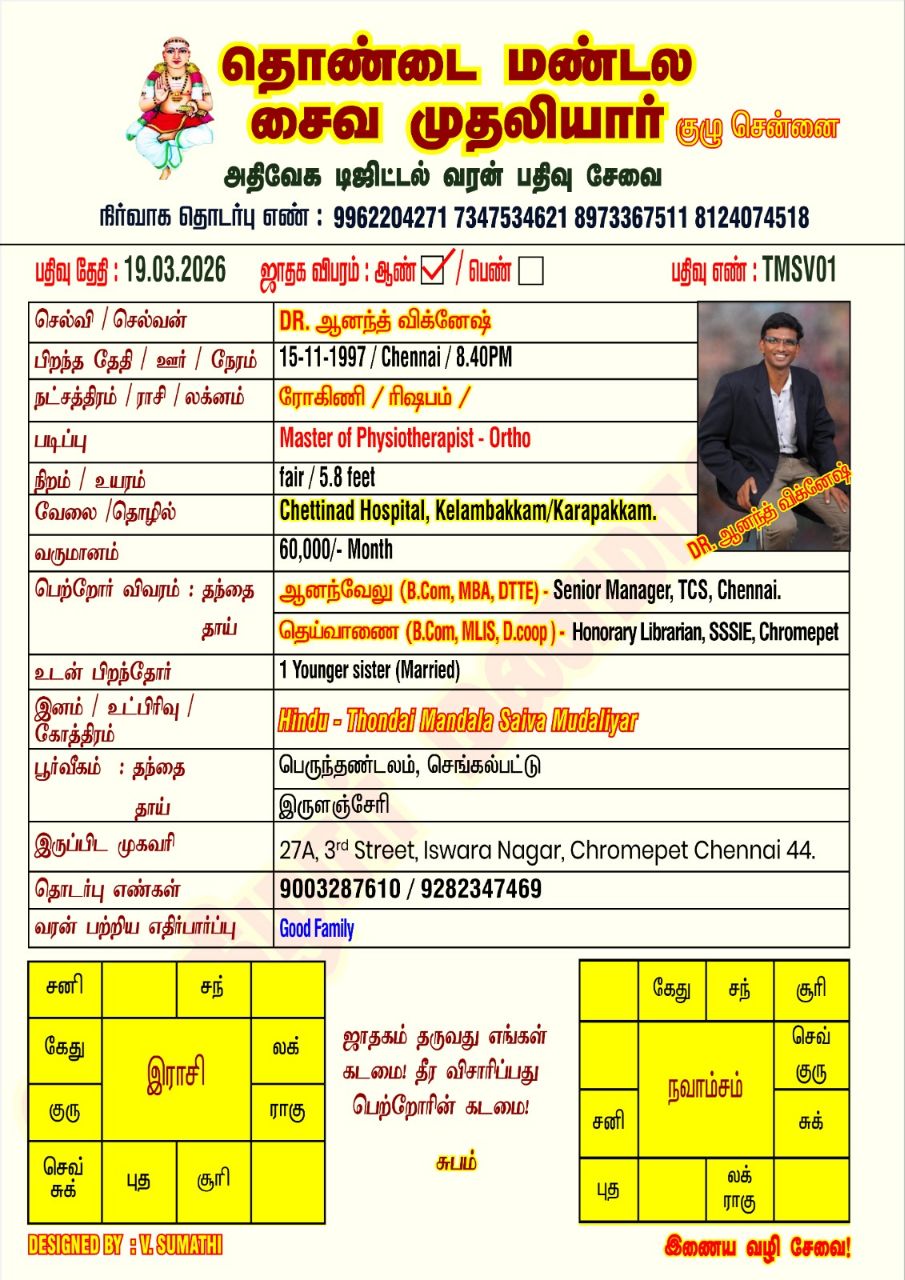 தொண்டை மண்டல
சைவ முதலியார் குழு சென்னை
அதிவேக டிஜிட்டல் வரன் பதிவு சேவை
நிர்வாக தொடர்பு எண் : 9962204271 7347534621 8973367511 8124074518
பதிவு தேதி : 19.03.2026 ஜாதக விபரம் : ஆண் / பெண் பதிவு எண் : TMSV01
செல்வி / செல்வன் DR. ஆனந்த் விக்னேஷ்
பிறந்த தேதி / ஊர் / நேரம் 15-11-1997 / Chennai / 8.40PM
நட்சத்திரம் / ராசி / லக்னம் ரோகிணி / ரிஷபம் /
படிப்பு Master of Physiotherapist - Ortho
நிறம் / உயரம் fair / 5.8 feet
வேலை /தொழில் Chettinad Hospital, Kelambakkam/Karapakkam.
DR. ஆனந்த் விக்னேஷ்
வருமானம் 60,000/- Month
பெற்றோர் விவரம் : தந்தை ஆனந்வேலு (B.Com, MBA, DTTE) - Senior Manager, TCS, Chennai.
தாய் தெய்வாணை (B.Com, MLIS, D.coop ) - Honorary Librarian, SSSIE, Chromepet
உடன் பிறந்தோர் 1 Younger sister (Married)
இனம் / உட்பிரிவு /
கோத்திரம் Hindu - Thondai Mandala Saiva Mudaliyar
பூர்வீகம் : தந்தை பெருந்தண்டலம், செங்கல்பட்டு
தாய் இருளஞ்சேரி
இருப்பிட முகவரி 27A, 3rd Street, Iswara Nagar, Chromepet Chennai 44.
தொடர்பு எண்கள் 9003287610 / 9282347469
வரன் பற்றிய எதிர்பார்ப்பு Good Family
சனி சந்
கேது லக்
இராசி
குரு ராகு
செவ் சுக் புத சூரி
ஜாதகம் தருவது எங்கள்
கடமை! தீர விசாரிப்பது
பெற்றோரின் கடமை!
சுபம்
கேது சந் சூரி
செவ் குரு
நவாம்சம்
சனி சுக்
புத லக் ராகு
DESIGNED BY : V. SUMATHI
இணைய வழி சேவை!